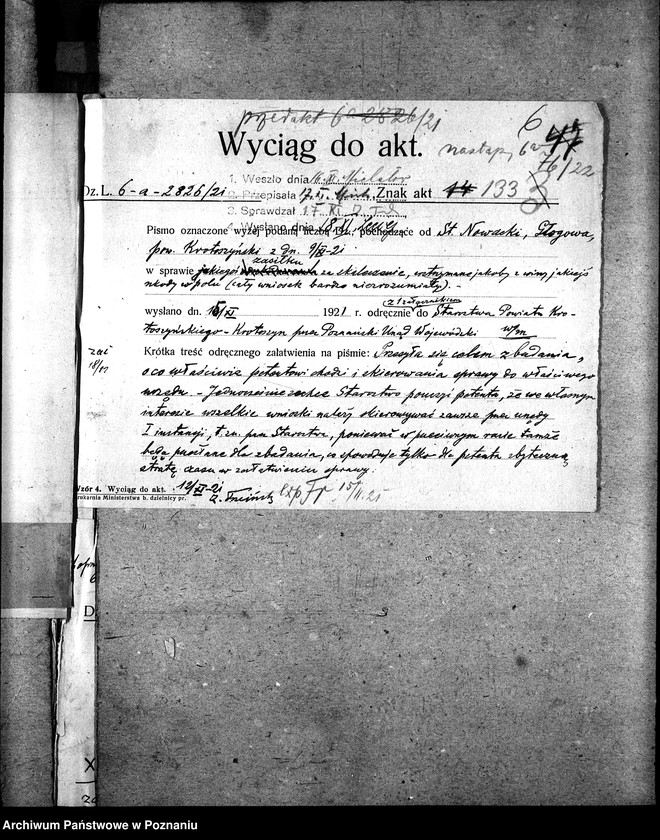 przedakt 6a 2826/21
6
Wyciąg do akt.
następ. 6a
76/22
1. Weszło dnia
Dz. L. 6-a-2826/21
2. Przepisała
Znak akt 14 133
3. Sprawdzał
4. Wysłano dnia
Pismo oznaczone wyżej podaną liczbą Dz., pochodzące od St. Nowacki,
pow. Krotoszyński z dn. 9/XI-21
zasiłku
w sprawie jakiegoś za skaleczenie, wstrzymane jakoby z winy jakiejś
szkody w polu (cały wniosek bardzo niezrozumiały). -
z 1 załącznikiem
wysłano dn. 15/XI 1921 r. odręcznie do Starostwa Powiatu Kro-
toszyńskiego - Krotoszyn przez Poznański Urząd Wojewódzki
Krótka treść odręcznego załatwienia na piśmie: Przesyła się celem zbadania,
18/XI
o co właściwie petentowi chodzi i skierowania sprawy do właściwego
urzędu. - Jednocześnie zechce Starostwo pouczyć petenta, że we własnym
interesie wszelkie wnioski należy skierowywać zawsze przez urzędy
I instancji, t. zn. przez Starostwa, ponieważ w przeciwnym razie tamże
będą przesłane dla zbadania, co spowoduje tylko dla petenta zbyteczną
stratę czasu w załatwieniu sprawy.
Wzór 4. Wyciąg do akt. 12/XI-21
Drukarnia Ministerstwa b. dzielnicy pr.
exp. Fr 15/11.21
D
X
Archiwum Państwowe w Poznaniu